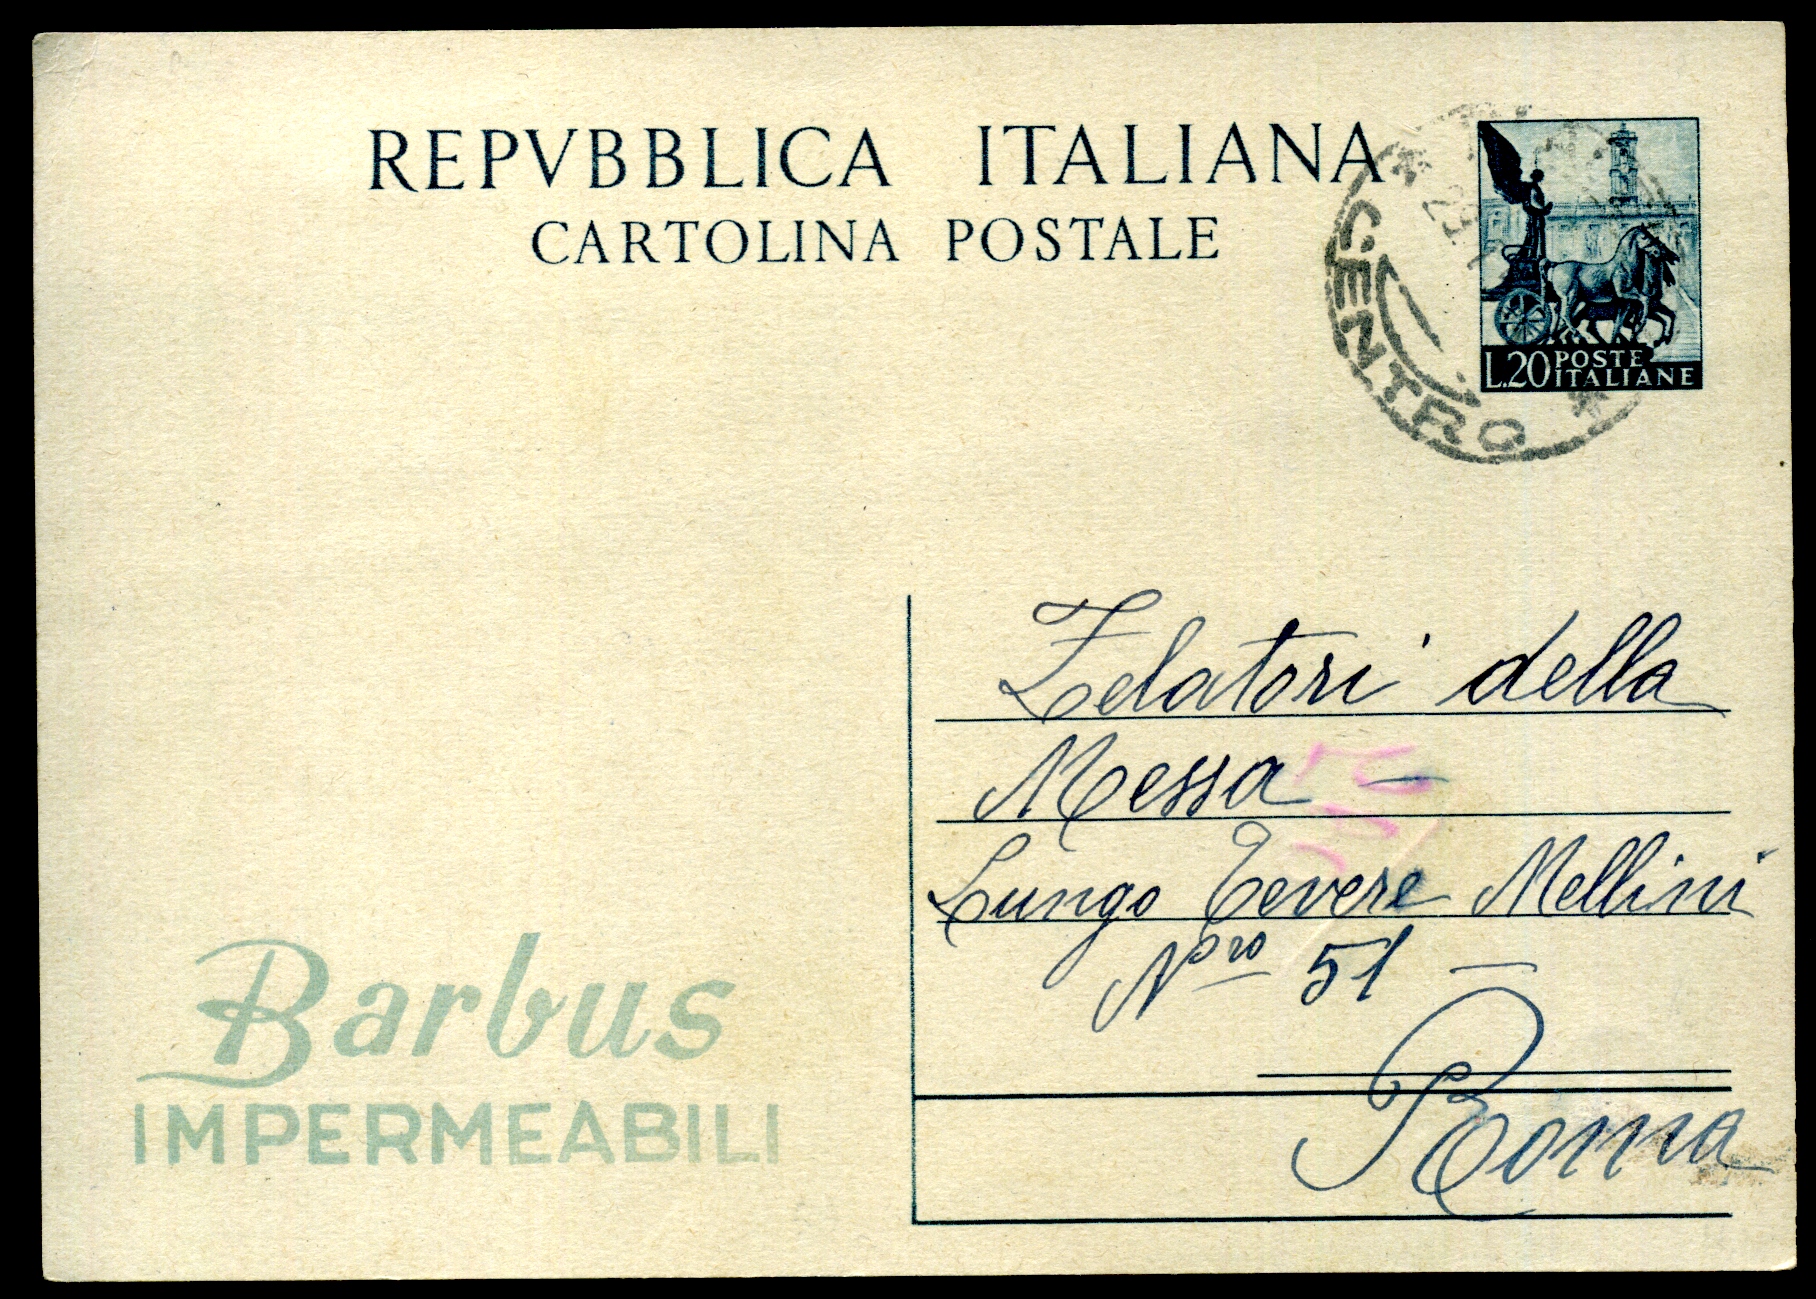 REPVBBLICA ITALIANA
CARTOLINA POSTALE
CENTRO
L.20 POSTE ITALIANE
Zelatori della
Messa -
Lungo Tevere Mellini
Nro 51 -
Roma
Barbus
IMPERMEABILI